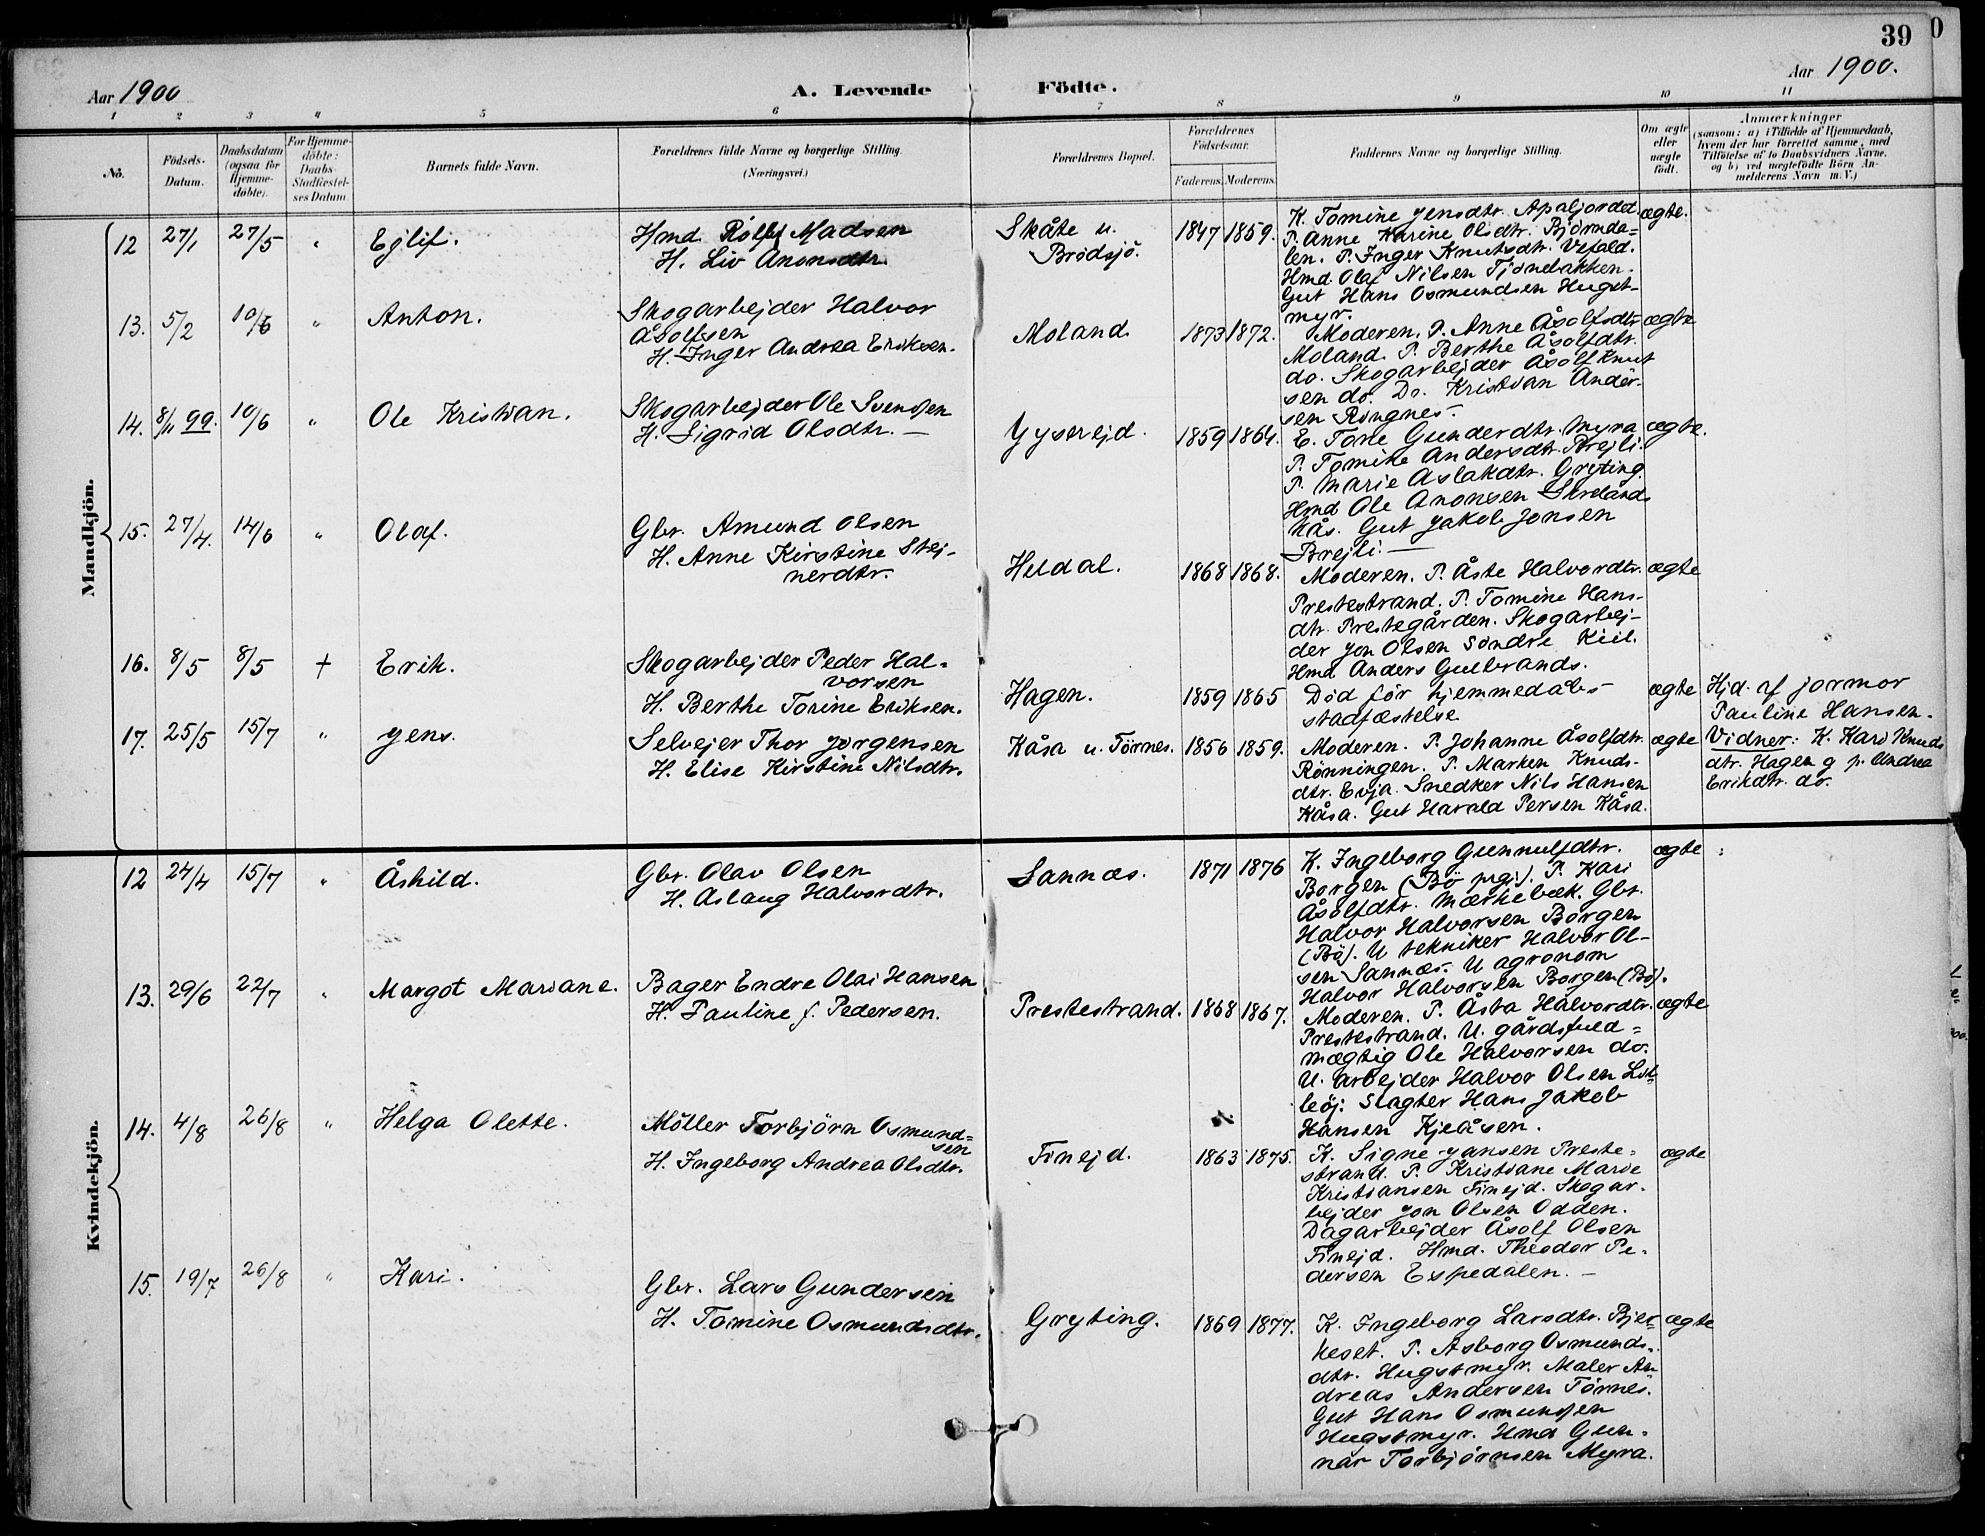 39
Aar 1900
A. Levende Födte.
Aar 1900.
1 2 3 4 5 6 7 8 9 10 11
No.
Födsels-Datum.
Daabsdatum (ogsaa for Hjemme-döbte).
For Hjemme-döbte: Daabs-Stadfæstel-ses Datum.
Barnets fulde Navn.
Forældrenes fulde Navne og borgerlige Stilling.
(Næringsvei.)
Forældrenes Bopæl.
Forældrenes Födselsaar.
Faderens. Moderens.
Faddernes Navne og borgerlige Stilling.
Om ægte eller uægte födt.
Anmærkninger
(saasom: a) i Tilfælde af Hjemmedaab,
hvem der har forrettet samme, med
Tilföielse af to Daabsvidners Navne,
og b) ved uægtefödte Börn An-
melderens Navn m. V.)
Mandkjön.
12 27/1 27/5 " Ejlif.
Hmd. Rolf Madsen
H. Liv Anonsdtr.
Skåte u.
Brödsjö.
1847 1859.
K. Tomine Jensdtr. Apaljordet
P. Anne Karine Olsdtr. Björnda-
len. P. Inger Knutsdtr. Vefald.
Hmd Olaf Nilsen Tjönebakken.
Gut Hans Osmundsen Hugst-
myr.
ægte.
13. 5/2 10/6 " Anton.
Skogarbejder Halvor
Åsolfsen
H. Inger Andrea Eriksen.
Moland.
1873 1872.
Moderen. P. Anne Åsolfsdtr
Moland. P. Berthe Åsolfdtr.
do. Skogarbejder Åsolf Knut
sen do. Do. Kristian Ander-
sen Rongnes.
ægte
14. 8/11 99. 10/6 " Ole Kristian.
Skogarbejder Ole Svensen
H. Sigrid Olsdtr. —
1859 1864.
E. Tone Gunderdtr. Myra
P. Tomine Andersdtr. Brejli.
P. Marie Aslakdtr. Gryting.
Hmd Ole Anonsen Skreland
Nås. Gut Jakob Jonsen
Brejli. —
ægte.
15. 27/4. 14/6 " Olaf.
Gbr. Amund Olsen
H. Anne Kirstine Stej-
nerdtr.
Heldal.
1868 1868.
Moderen. P. Åste Halvordtr.
Prestestrand. P. Tomine Hans-
dtr. Prestegården. Skogarbej-
der Jon Olsen Söndre Kiil.
Hmd Anders Gulbrands.
ægte
16. 8/5 8/5 + Erik.
Skogarbejder Peder Hal-
vorsen
H. Berthe Torine Eriksen.
Hagen.
1859 1865
Död för hjemmedåbs-
stadfæstelse
ægte
Hjd. af jormor
Pauline Hansen.
Vidner: K. Kari Knuds
dtr. Hagen og p. Andrea
Erikdtr. do.
17. 25/5 15/7 " Jens.
Selvejer Thor Jörgensen
H. Elise Kirstine Nilsdtr.
Kåsa u. Törnes.
1856 1859.
Moderen. P. Johanne Åsolfdtr.
Rönningen. P. Marken Knuds-
dtr. Evja. Snedker Nils Hansen
Kåsa. Gut Harald Persen Kåsa.
ægte
Kvindekjön.
12 24/4 15/7 " Åshild.
Gbr. Olav Olsen
H. Aslaug Halvordtr.
Sannæs.
1871 1876
K. Ingeborg Gunnulfdtr.
Borgen (Bö prgj.). P. Kari
Åsolfdtr. Mærkebæk. Gbr.
Halvor Halvorsen Borgen
(Bö). U tekniker Halvor Ol-
sen Sannæs. U agronom
Halvor Halvorsen Borgen (Bö).
ægte
13. 29/6 22/7 " Margot Mariane.
Bager Endre Olai Hansen
H. Pauline f. Pedersen.
Prestestrand.
1868 1867.
Moderen. P. Åsta Halvordtr.
Prestestrand. U. gårdsfuld-
mægtig Ole Halvorsen do.
U. arbejder Halvor Olsen List-
leöj. Slagter Hans Jakob
Hansen Kjeåsen.
ægte
14. 4/8 26/8 " Helga Olette.
Möller Torbjörn Osmund-
sen
H. Ingeborg Andrea Olsdtr.
Finejd.
1863 1875.
K. Signe Jansen Preste-
strand. P. Kristiane Marie
Kristiansen Finejd. Skogar-
bejder Jon Olsen Odden.
Dagarbejder Åsolf Olsen
Finejd. Hmd. Theodor Pe-
dersen Espedalen. —
ægte
15. 19/7 26/8 " Kari.
Gbr. Lars Gundersen
H. Tomine Osmundsdtr.
Gryting.
1869 1877.
K. Ingeborg Larsdtr. Bjer-
keset. P. Asborg Osmunds-
dtr. Hugstmyr. Maler An
dreas Andersen Törnes.
Gut Hans Osmundsen
Hugstmyr. Hmd Gun-
nar Torbjörnsen Myra.
ægte